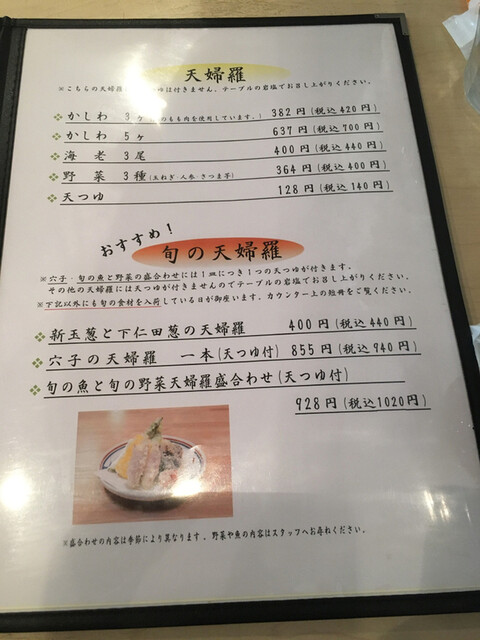 天婦羅
※こちらの天婦羅 は付きません。テーブルの岩塩でお召し上がりください。
かしわ 3ヶ もも肉を使用しています。) 382円(税込420円)
かしわ 5ヶ 637円(税込700円)
海老 3尾 400円(税込440円)
野菜 3種(玉ねぎ・人参・さつま芋) 364円(税込400円)
天つゆ 128円(税込140円)
おすすめ!
旬の天婦羅
※穴子・旬の魚と野菜の盛合わせには1皿につき1つの天つゆが付きます。
その他の天婦羅には天つゆが付きませんのでテーブルの岩塩でお召し上がりください。
※下記以外にも旬の食材を入荷している日が御座います。カウンター上の短冊をご覧ください。
新玉葱と下仁田葱の天婦羅 400円(税込440円)
穴子の天婦羅 一本(天つゆ付) 855円(税込940円)
旬の魚と旬の野菜天婦羅盛合わせ(天つゆ付)
928円(税込1020円)
※盛合わせの内容は季節により異なります。野菜や魚の内容はスタッフへお尋ねください。